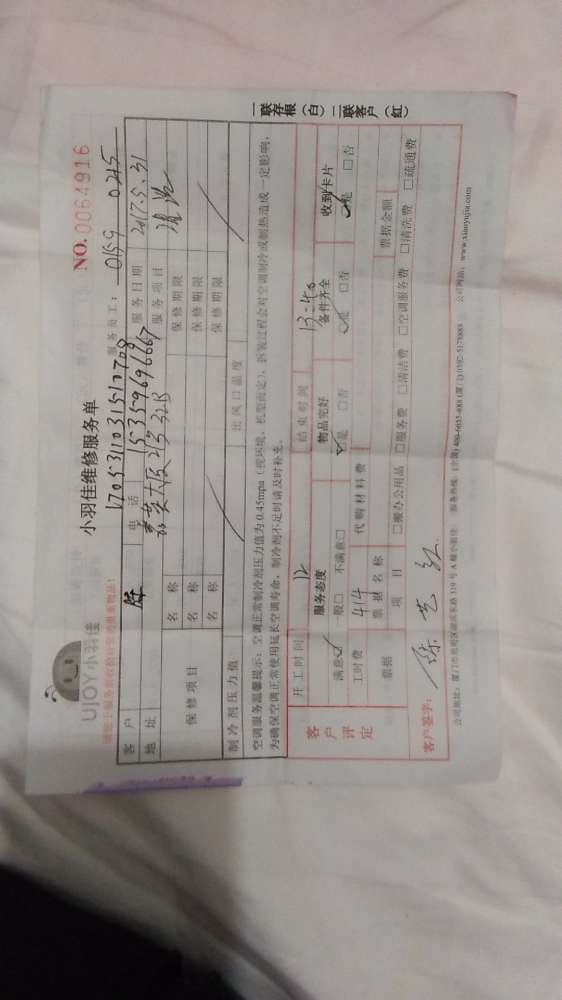 UJOY小羽佳
小羽佳维修服务单
NO.0064916
17053110315127708
服务员工： 0159 0245
客户 陈 电话 15359696667 服务日期 2017.5.31
地址 嘉英大厦 服务项目 清洗
保修项目 名称 保修期限
名称 保修期限
名称 保修期限
制冷剂压力值 出风口温度
空调服务温馨提示：空调正常制冷剂压力值为0.45mpa（视环境、机型而定），拆装过程会对空调制冷或制热造成一定影响，
为确保空调正常使用延长空调寿命，制冷剂不足时请及时补充。
客户评定
开工时间 12 结束时间 13-40
服务态度 物品完好 备件齐全 收到卡片
满意☑ 一般□ 不满意□ ☑是 □否 ☑是 □否 ☑是 □否
工时费 414 代购材料费
票据 票据名称 票据金额
项目 □搬办公用品 □服务费 □清洁费 □空调服务费 □清洗费 □疏通费
客户签字： 陈艺红
公司网站：www.xiaoyujia.com
一联存根（白）二联客户（红）